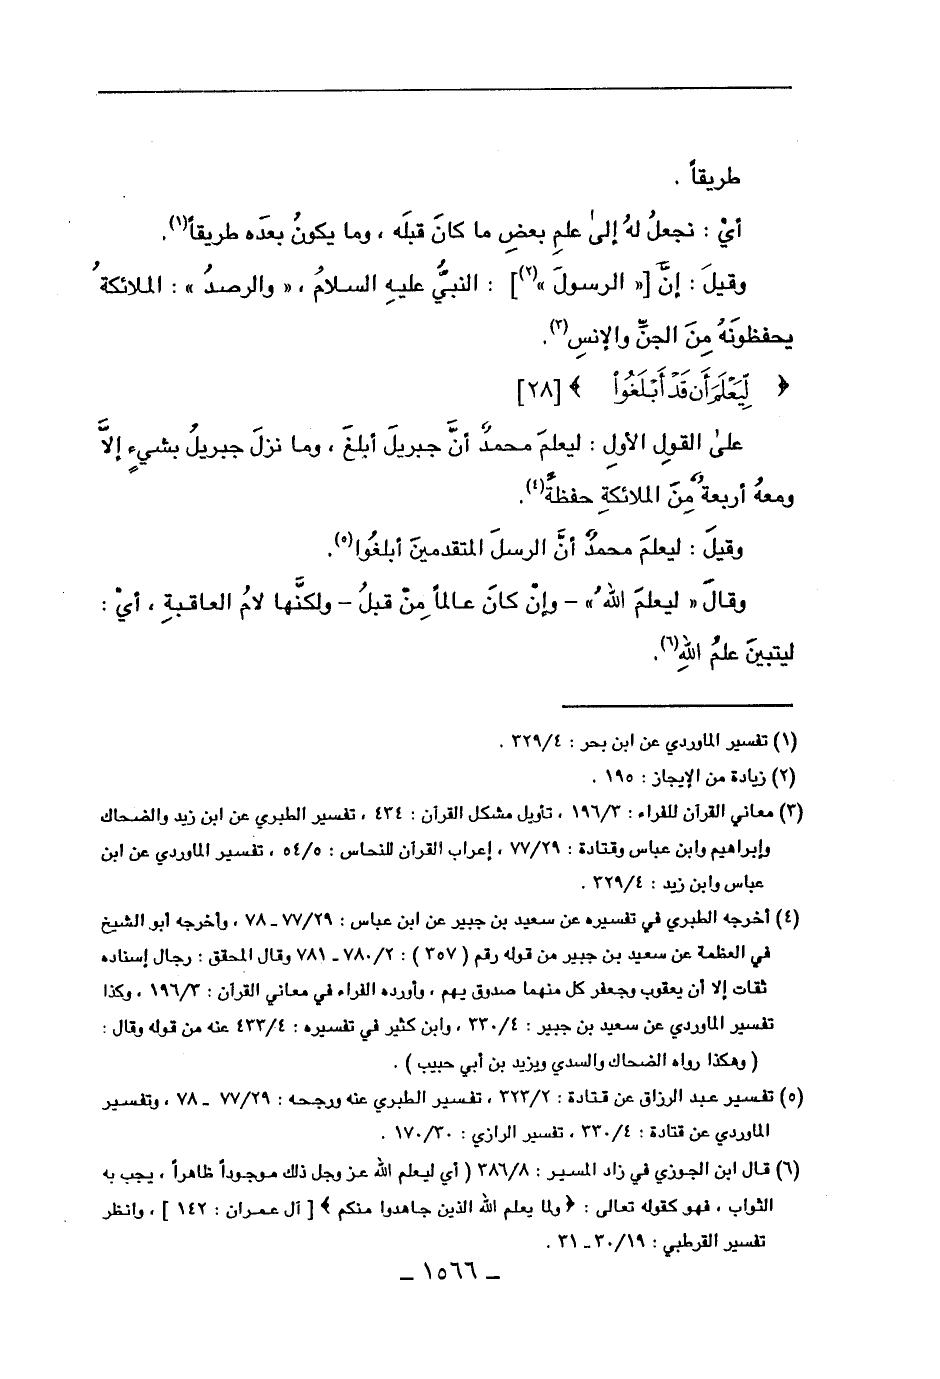 طريقاً .
أيْ : نجعلُ لهُ إلىٰ علمِ بعضِ ما كانَ قبلَه ، وما يكونُ بعدَه طريقاً(١).
وقيلَ : إنَّ [« الرسولَ »(٢)] : النبيُّ عليهِ السلامُ ، « والرصدُ » : الملائكةُ
يحفظونَهُ مِنَ الجنِّ والإنسِ(٣).
﴿ لِّيَعْلَمَ أَن قَدْ أَبْلَغُواْ ﴾ [٢٨]
علىٰ القولِ الأولِ : ليعلمَ محمدٌ أنَّ جبريلَ أبلغَ ، وما نزلَ جبريلُ بشيءٍ إلاَّ
ومعهُ أربعةٌ مِنَ الملائكةِ حفظةً(٤).
وقيلَ : ليعلمَ محمدٌ أنَّ الرسلَ المتقدمينَ أبلغُوا(٥).
وقالَ « ليعلمَ اللهُ » – وإنْ كانَ عالماً مِنْ قبلُ – ولكنَّها لامُ العاقبةِ ، أيْ :
ليتبينَ علمُ اللهِ(٦).
(١) تفسير الماوردي عن ابن بحر : ٣٢٩/٤ .
(٢) زيادة من الإيجاز : ١٩٥ .
(٣) معاني القرآن للفراء : ١٩٦/٣ ، تأويل مشكل القرآن : ٤٣٤ ، تفسير الطبري عن ابن زيد والضحاك
وإبراهيم وابن عباس وقتادة : ٧٧/٢٩ ، إعراب القرآن للنحاس : ٥٤/٥ ، تفسير الماوردي عن ابن
عباس وابن زيد : ٣٢٩/٤ .
(٤) أخرجه الطبري في تفسيره عن سعيد بن جبير عن ابن عباس : ٧٧/٢٩ ـ ٧٨ ، وأخرجه أبو الشيخ
في العظمة عن سعيد بن جبير من قوله رقم ( ٣٥٧ ) : ٧٨٠/٢ ـ ٧٨١ وقال المحقق : رجال إسناده
ثقات إلا أن يعقوب وجعفر كل منهما صدوق يهم ، وأورده الفراء في معاني القرآن : ١٩٦/٣ ، وكذا
تفسير الماوردي عن سعيد بن جبير : ٣٣٠/٤ ، وابن كثير في تفسيره : ٤٣٣/٤ عنه من قوله وقال :
( وهكذا رواه الضحاك والسدي ويزيد بن أبي حبيب ) .
(٥) تفسير عبد الرزاق عن قتادة : ٣٢٣/٢ ، تفسير الطبري عنه ورجحه : ٧٧/٢٩ ـ ٧٨ ، وتفسير
الماوردي عن قتادة : ٣٣٠/٤ ، تفسير الرازي : ١٧٠/٣٠ .
(٦) قال ابن الجوزي في زاد المسير : ٣٨٦/٨ ( أي ليعلم الله عز وجل ذلك موجوداً ظاهراً ، يجب به
الثواب ، فهو كقوله تعالى : ﴿ ولما يعلم الله الذين جاهدوا منكم ﴾ [ آل عمران : ١٤٢ ] ، وانظر
تفسير القرطبي : ٣٠/١٩ ـ ٣١ .
ـ ١٥٦٦ ـ